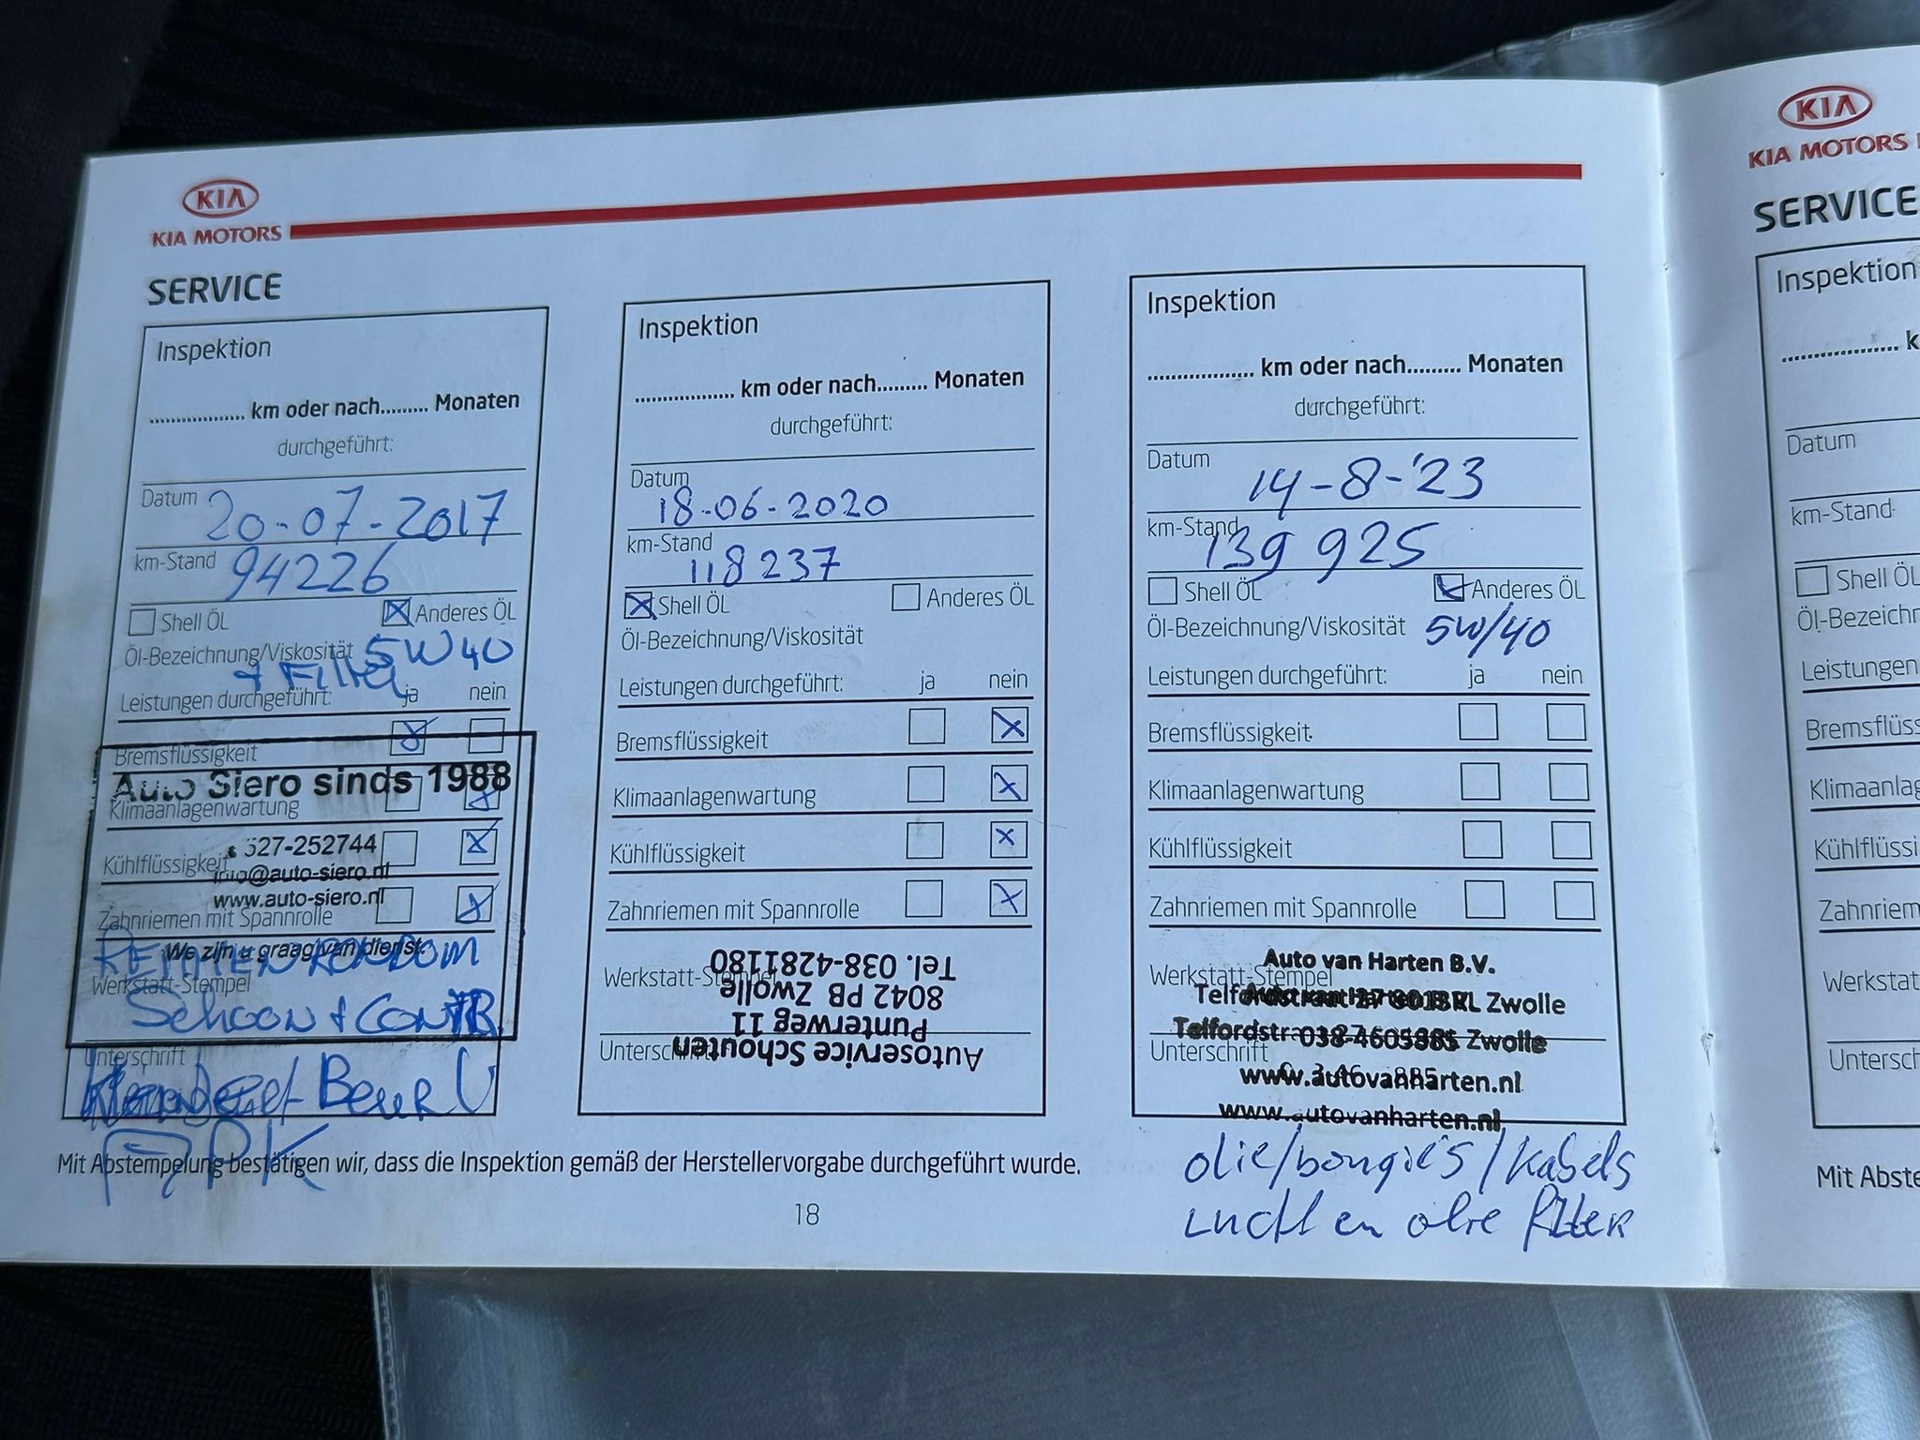 KIA
KIA MOTORS
SERVICE
Inspektion
.................. km oder nach......... Monaten
durchgeführt:
Datum 20-07-2017
km-Stand 94226
Shell ÖL Anderes ÖL
Öl-Bezeichnung/Viskosität 5W40
+ Filter
Leistungen durchgeführt: ja nein
Bremsflüssigkeit
Auto Siero sinds 1988
Klimaanlagenwartung
527-252744
Kühlflüssigkeit
info@auto-siero.nl
www.auto-siero.nl
Zahnriemen mit Spannrolle
We zijn u graag van dienst.
REMMEN RONDOM
Werkstatt-Stempel
SCHOON + CONTR
Unterschrift
Beur
APK
Inspektion
.................. km oder nach......... Monaten
durchgeführt:
Datum
18-06-2020
km-Stand
118237
Shell ÖL Anderes ÖL
Öl-Bezeichnung/Viskosität
Leistungen durchgeführt: ja nein
Bremsflüssigkeit
Klimaanlagenwartung
Kühlflüssigkeit
Zahnriemen mit Spannrolle
Werkstatt-Stempel
Unterschrift
Autoservice Schouten
Punterweg 11
8042 PB Zwolle
Tel. 038-4281180
Inspektion
.................. km oder nach......... Monaten
durchgeführt:
Datum
14-8-'23
km-Stand
139 925
Shell ÖL Anderes ÖL
Öl-Bezeichnung/Viskosität 5W/40
Leistungen durchgeführt: ja nein
Bremsflüssigkeit
Klimaanlagenwartung
Kühlflüssigkeit
Zahnriemen mit Spannrolle
Auto van Harten B.V.
Werkstatt-Stempel
Zwolle
Zwolle
Unterschrift
www.autovanharten.nl
www.autovanharten.nl
olie/bougies/kabels
lucht en olie filter
Mit Abstempelung bestätigen wir, dass die Inspektion gemäß der Herstellervorgabe durchgeführt wurde.
18
KIA
KIA MOTORS
SERVICE
Inspektion
.................. k
Datum
km-Stand
Shell ÖL
Öl-Bezeichn
Leistungen
Bremsflüss
Klimaanlag
Kühlflüssi
Zahnriem
Werkstat
Untersch
Mit Abste